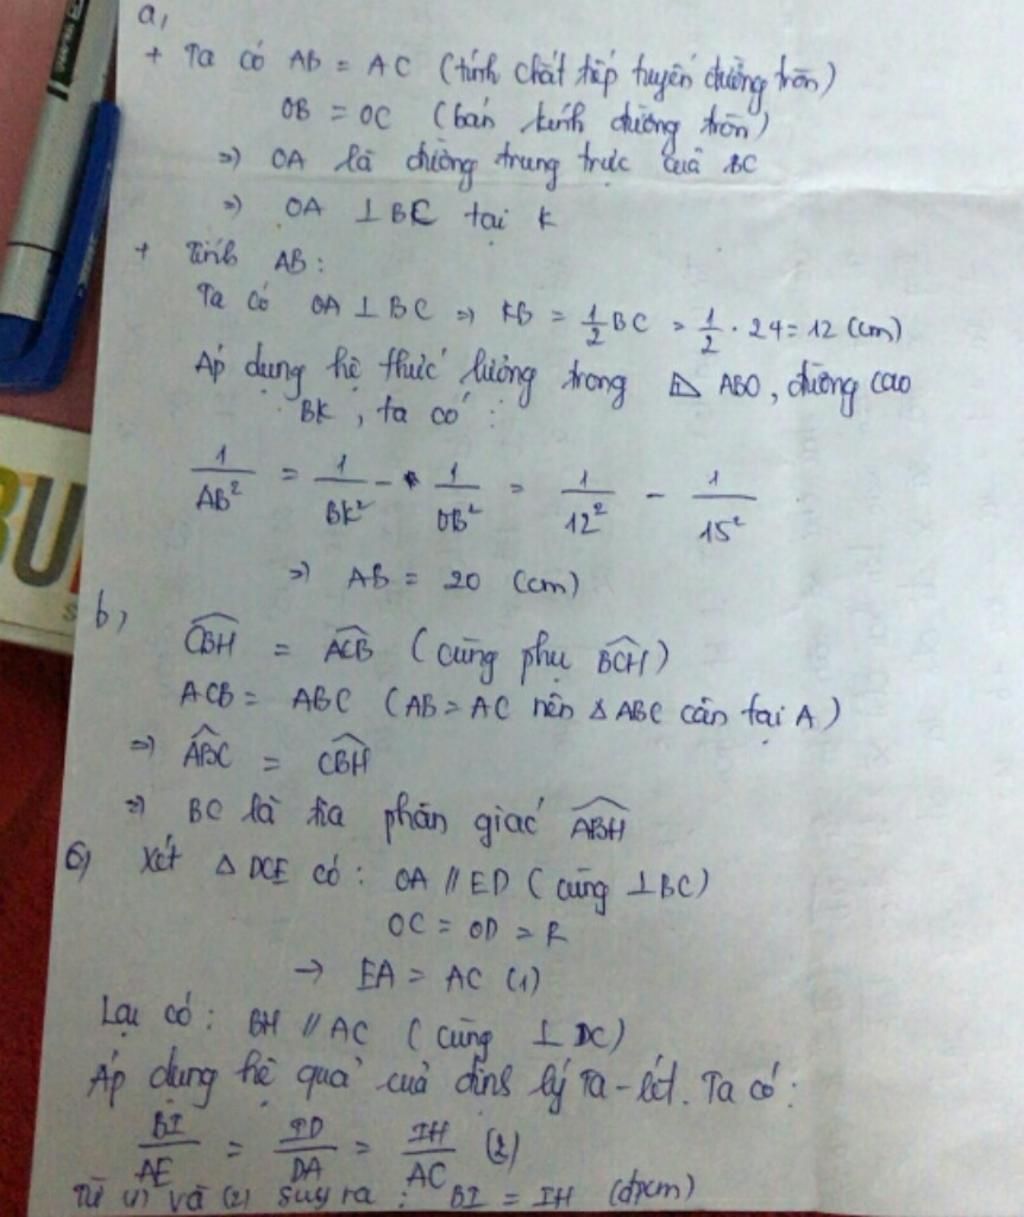 a,
+ Ta có AB = AC (tính chất tiếp tuyến đường tròn)
OB = OC (bán kính đường tròn)
=> OA là đường trung trực của BC
=> OA ⊥ BC tại K
+ Tính AB:
Ta có OA ⊥ BC => KB = 1/2 BC = 1/2 . 24 = 12 (cm)
Áp dụng hệ thức lượng trong △ ABO, đường cao
BK, ta có:
1/AB² = 1/BK² - 1/OB² = 1/12² - 1/15²
=> AB = 20 (cm)
b,
CBH = ACB (cùng phụ BCH)
ACB = ABC (AB = AC nên △ ABC cân tại A)
=> ABC = CBH
=> BC là tia phân giác ABH
6, Xét △ DCE có: OA // ED (cùng ⊥ BC)
OC = OD = R
→ EA = AC (1)
Lại có: BH // AC (cùng ⊥ DC)
Áp dụng hệ quả của định lý Ta-lét. Ta có:
BI/AE = ID/DA = IH/AC (2)
Từ (1) và (2) suy ra: BI = IH (đpcm)
BU